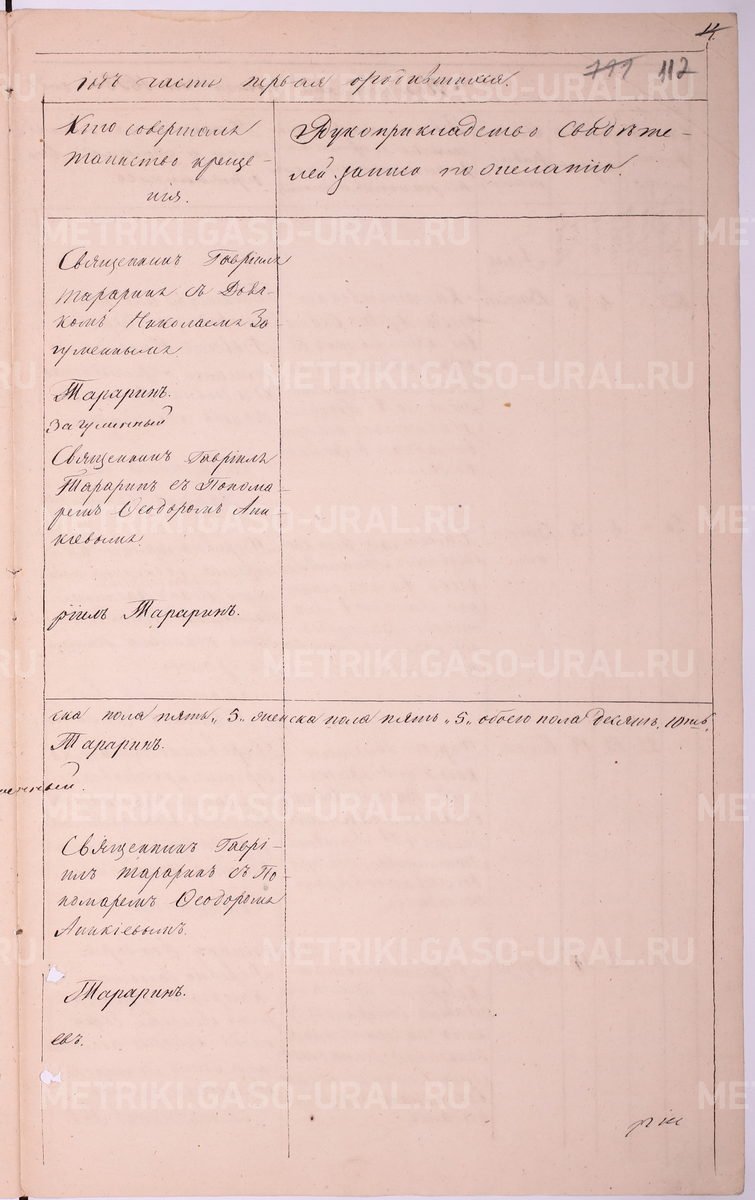 4
годъ часть первая ородившихся. 111 112
Кто совершалъ
таинство креще-
нія.
Рукоприкладство свидѣте-
лей записи по желанію.
Священникъ Гавріилъ
Тараринъ съ Дья-
комъ Николаемъ За-
гуменнымъ
Тараринъ.
Загуменный
Священникъ Гавріилъ
Тараринъ съ Понома-
ремъ Ѳеодоромъ Ани-
кіевымъ
ріилъ Тараринъ.
ска пола пять „5„ женска пола пять „5„ обоего пола десять, 10ть.
Тараринъ.
менный.
Священникъ Гаврі-
илъ Тараринъ съ По-
номаремъ Ѳеодоромъ
Аникіевымъ.
Тараринъ.
евъ.
METRIKI.GASO-URAL.RU